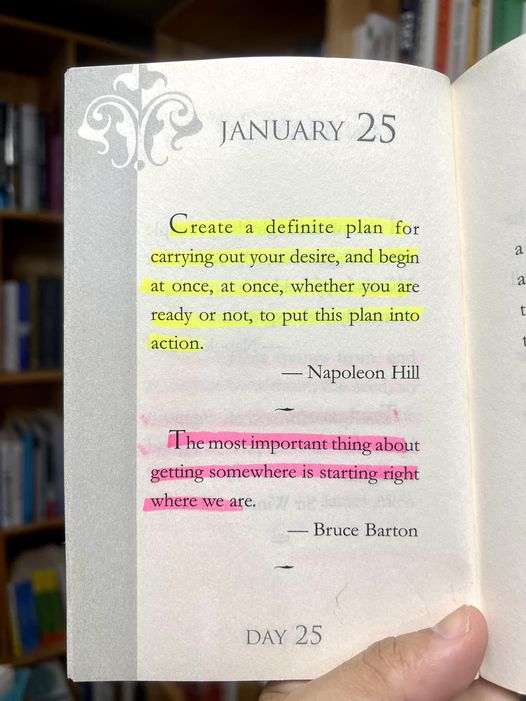 JANUARY 25
Create a definite plan for
carrying out your desire, and begin
at once, at once, whether you are
ready or not, to put this plan into
action.
— Napoleon Hill
The most important thing about
getting somewhere is starting right
where we are.
— Bruce Barton
DAY 25
a
a
t
t